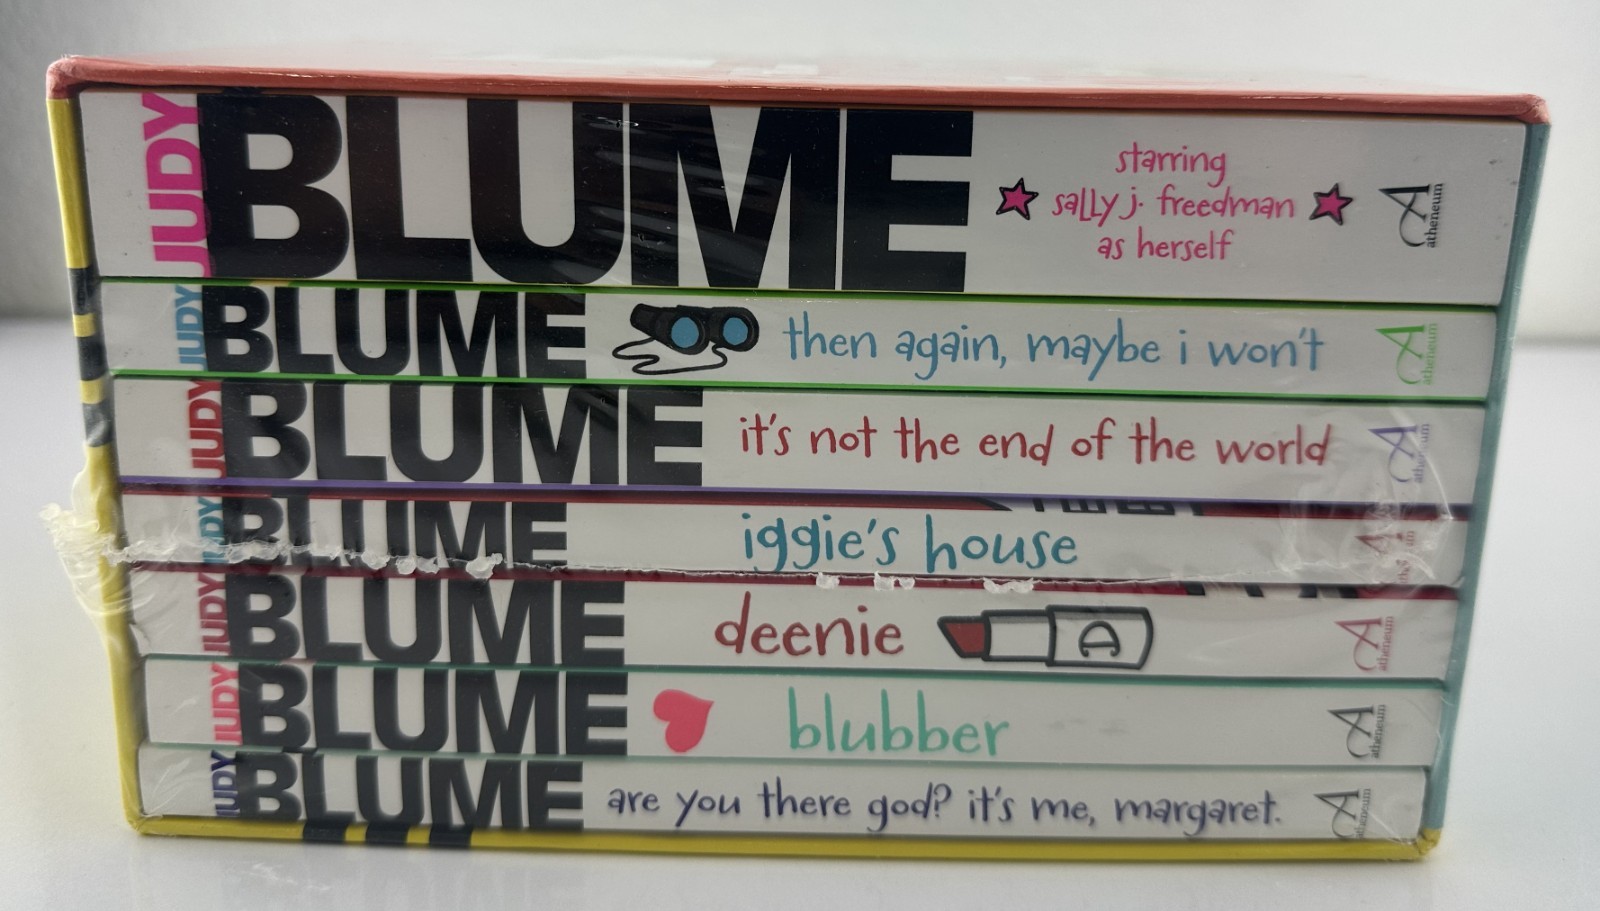 JUDY BLUME
starring
sally j. freedman
as herself
atheneum
JUDY BLUME then again, maybe i won't atheneum
JUDY BLUME it's not the end of the world atheneum
JUDY BLUME iggie's house
JUDY BLUME deenie D atheneum
JUDY BLUME blubber atheneum
JUDY BLUME are you there god? it's me, margaret. atheneum